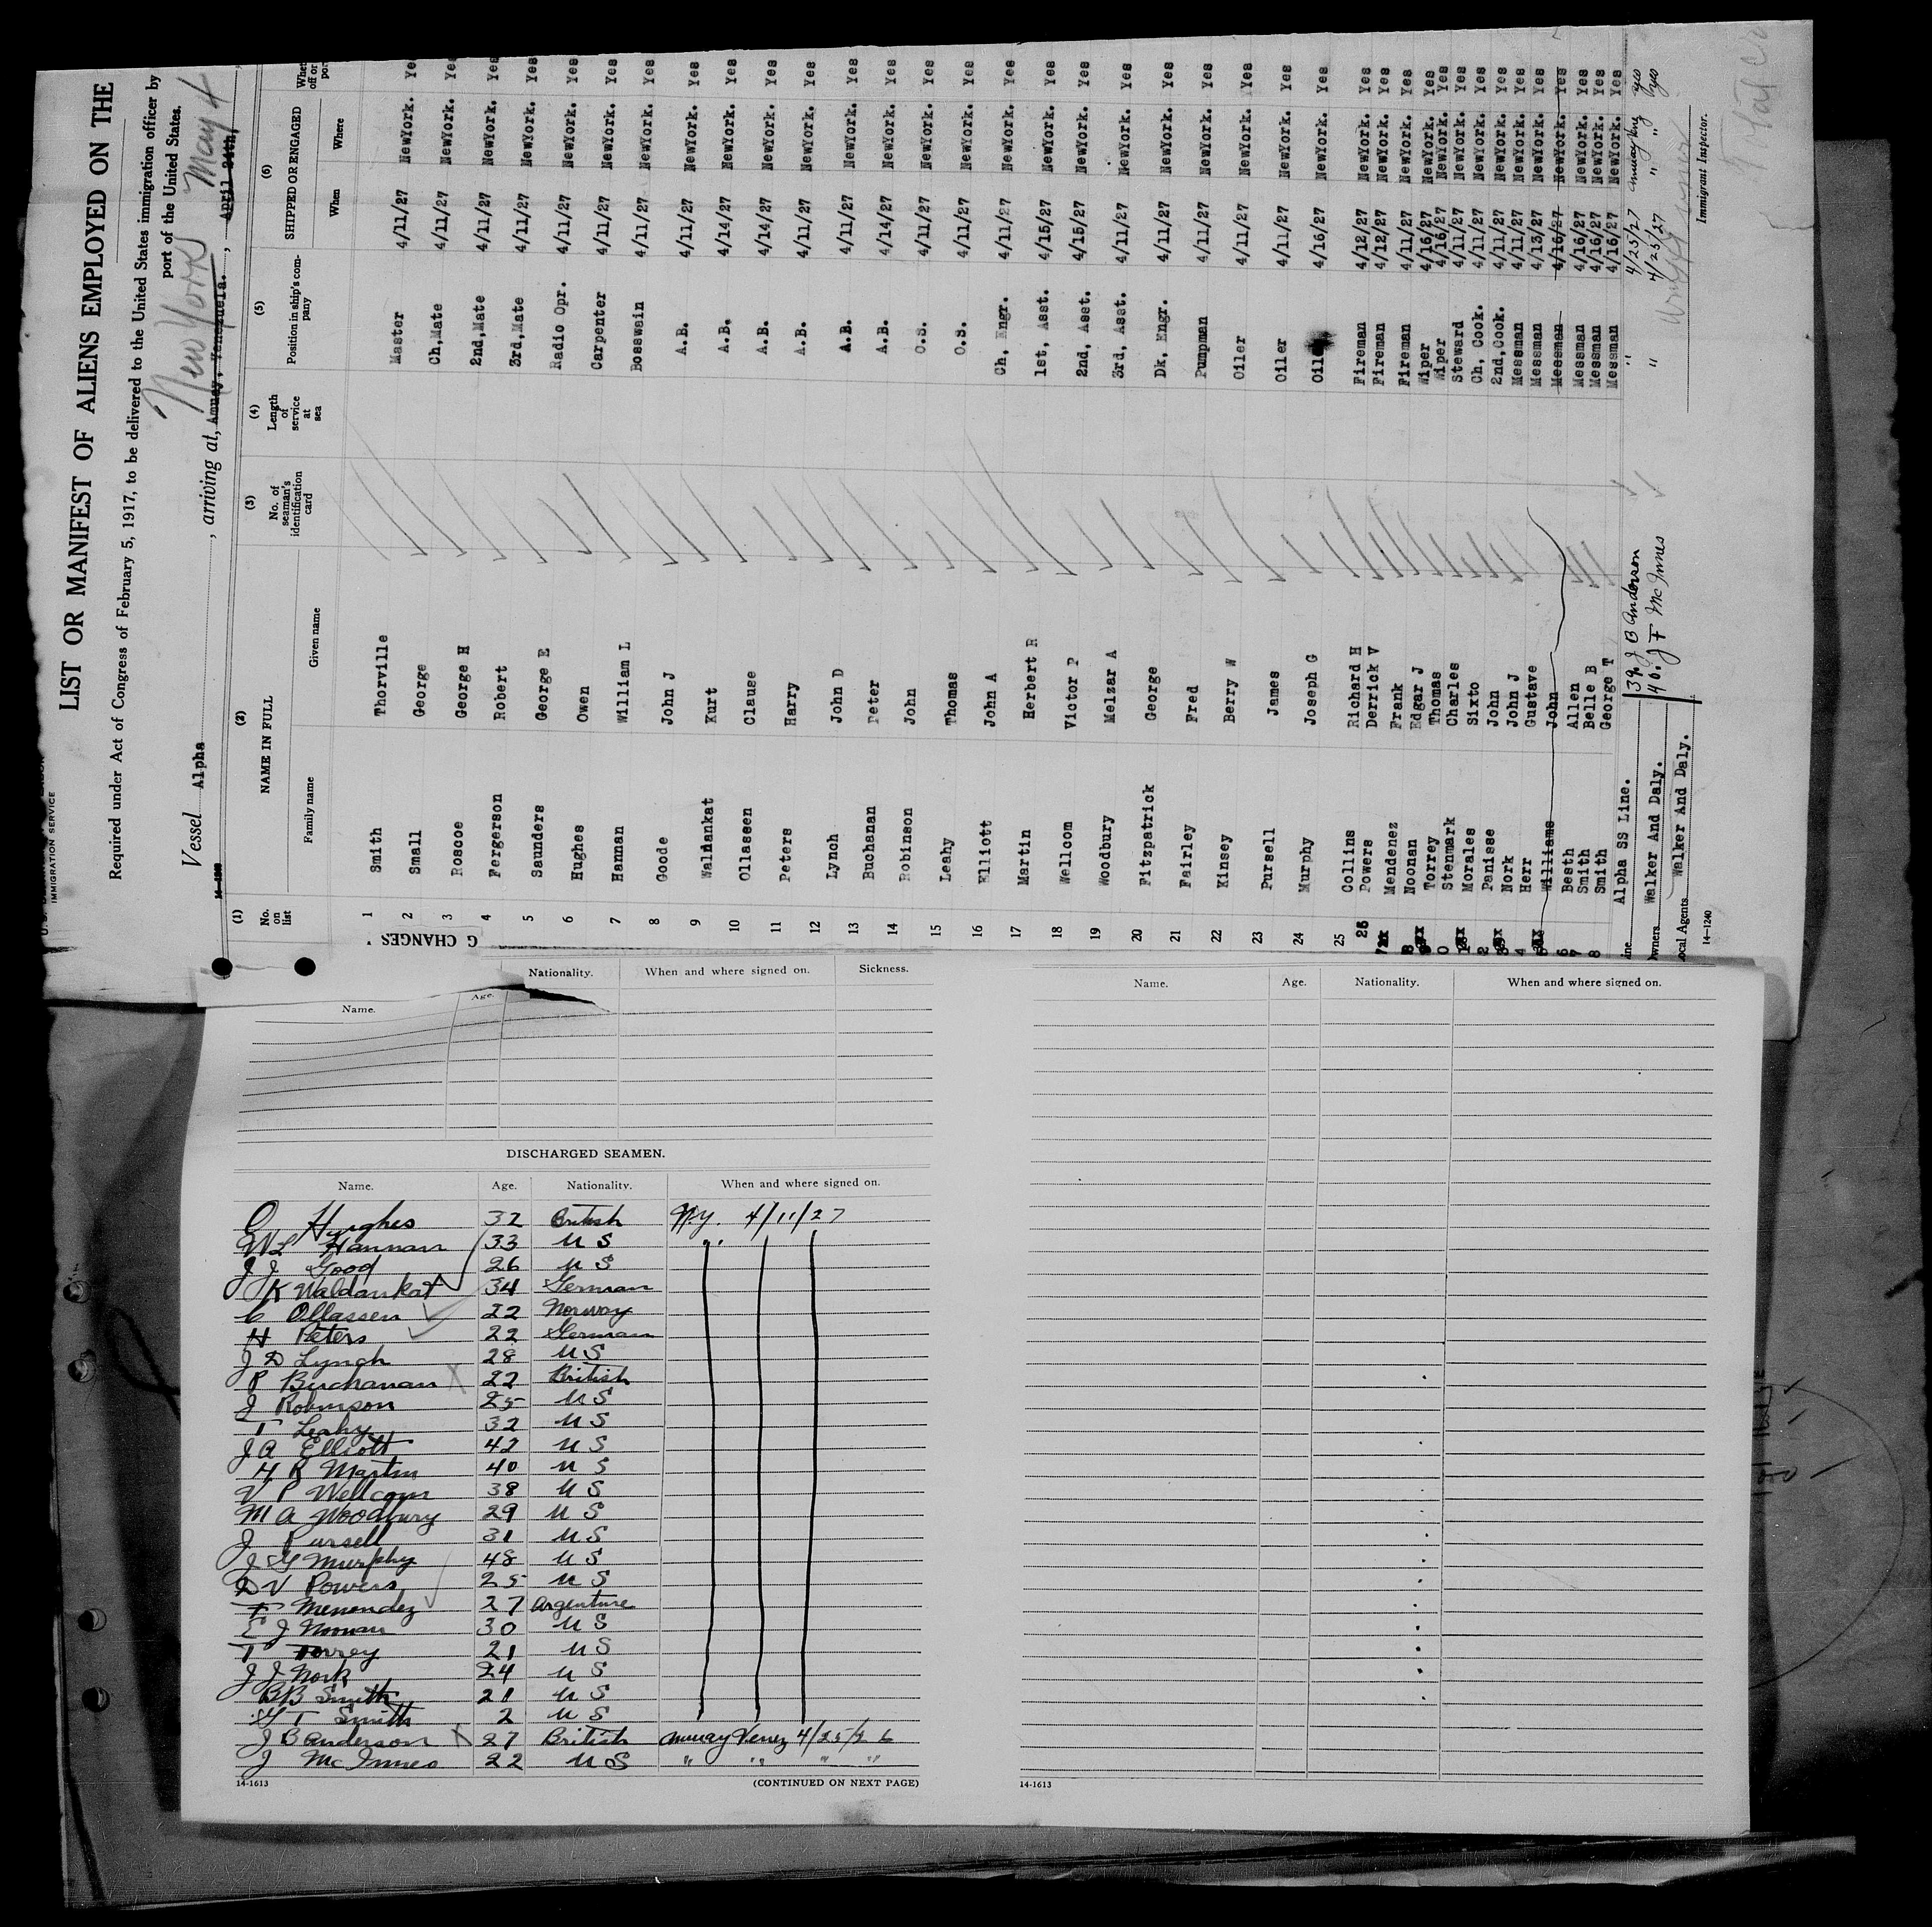 U. S. DEPARTMENT OF LABOR
IMMIGRATION SERVICE
LIST OR MANIFEST OF ALIENS EMPLOYED ON THE
Required under Act of Congress of February 5, 1917, to be delivered to the United States immigration officer by
port of the United States.
Vessel Alpha , arriving at, Amuay, Venezuela. , April 24th,
New York May 4
14-1240
(1) (2) (3) (4) (5) (6)
No. on list NAME IN FULL No. of seaman's identification card Length of service at sea Position in ship's company SHIPPED OR ENGAGED
Family name Given name When Where
1 Smith Thorville Master 4/11/27 NewYork. Yes
2 Small George Ch,Mate 4/11/27 NewYork. Yes
3 Roscoe George H 2nd,Mate 4/11/27 NewYork. Yes
4 Fergerson Robert 3rd,Mate 4/11/27 NewYork. Yes
5 Saunders George E Radio Opr. 4/11/27 NewYork. Yes
6 Hughes Owen Carpenter 4/11/27 NewYork. Yes
7 Hannan William L Bosswain 4/11/27 NewYork. Yes
8 Goode John J A.B. 4/11/27 NewYork. Yes
9 Waldankat Kurt A.B. 4/14/27 NewYork. Yes
10 Ollassen Clause A.B. 4/14/27 NewYork. Yes
11 Peters Harry A.B. 4/11/27 NewYork. Yes
12 Lynch John D A.B. 4/11/27 NewYork. Yes
13 Buchanan Peter A.B. 4/14/27 NewYork. Yes
14 Robinson John O.S. 4/11/27 NewYork. Yes
15 Leahy Thomas O.S. 4/11/27 NewYork. Yes
16 Elliott John A Ch, Engr. 4/11/27 NewYork. Yes
17 Martin Herbert R 1st, Asst. 4/15/27 NewYork. Yes
18 Wellcom Victor P 2nd, Asst. 4/15/27 NewYork. Yes
19 Woodbury Melzar A 3rd, Asst. 4/11/27 NewYork. Yes
20 Fitzpatrick George Dk, Engr. 4/11/27 NewYork. Yes
21 Fairley Fred Pumpman 4/11/27 NewYork. Yes
22 Kinsey Berry W Oiler 4/11/27 NewYork. Yes
23 Pursell James Oiler 4/11/27 NewYork. Yes
24 Murphy Joseph G Oiler 4/16/27 NewYork. Yes
25 Collins Richard H Fireman 4/12/27 NewYork. Yes
26 Powers Derrick V Fireman 4/12/27 NewYork. Yes
7 Mendenez Frank Fireman 4/11/27 NewYork. Yes
8 Noonan Edgar J Wiper 4/16/27 NewYork. Yes
9 Torrey Thomas Wiper 4/16/27 NewYork. Yes
0 Stenmark Charles Steward 4/11/27 NewYork. Yes
1 Morales Sixto Ch, Cook. 4/11/27 NewYork. Yes
2 Panisse John 2nd,Cook. 4/11/27 NewYork. Yes
3 Nork John J Messman 4/11/27 NewYork. Yes
4 Herr Gustave Messman 4/13/27 NewYork. Yes
5 Williams John Messman 4/16/27 NewYork. Yes
6 Besth Allen Messman 4/16/27 NewYork. Yes
7 Smith Belle B Messman 4/16/27 NewYork. Yes
8 Smith George T Messman 4/16/27 NewYork. Yes
Alpha SS Line. 39. J B Anderson " 4/25/27 Amuay Ven yes
Owners Walker And Daly. 40. J F McInnes " 4/25/27 " " yes
Local Agents Walker And Daly.
Immigrant Inspector.
14-1240
G CHANGES
Name. Age. Nationality. When and where signed on. Sickness.
DISCHARGED SEAMEN.
Name. Age. Nationality. When and where signed on.
O Hughes 32 British N.Y. 4/11/27
W L Hannan 33 U S " "
J J Good 26 U S
K Waldankat 34 German
C Ollassen 22 Norway
H Peters 22 German
J D Lynch 28 U S
P Buchanan X 22 British
J Robinson 25 U S
T Leahy 32 U S
J A Elliott 42 U S
H R Martin 40 U S
V P Wellcom 38 U S
M A Woodbury 29 U S
J Pursell 31 U S
J G Murphy 48 U S
D V Powers 25 U S
F Menendez 27 Argentine
E J Noonan 30 U S
T Torrey 21 U S
J J Nork 24 U S
B B Smith 21 U S
G T Smith 2 U S
J B Anderson X 27 British Amuay Venez 4/25/26
J McInnes 22 U S " " " "
14-1613 (CONTINUED ON NEXT PAGE)
Name. Age. Nationality. When and where signed on.
14-1613